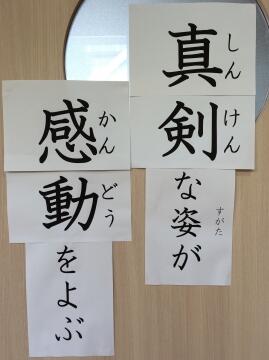 真剣な姿が
しんけん
すがた
感動をよぶ
かんどう